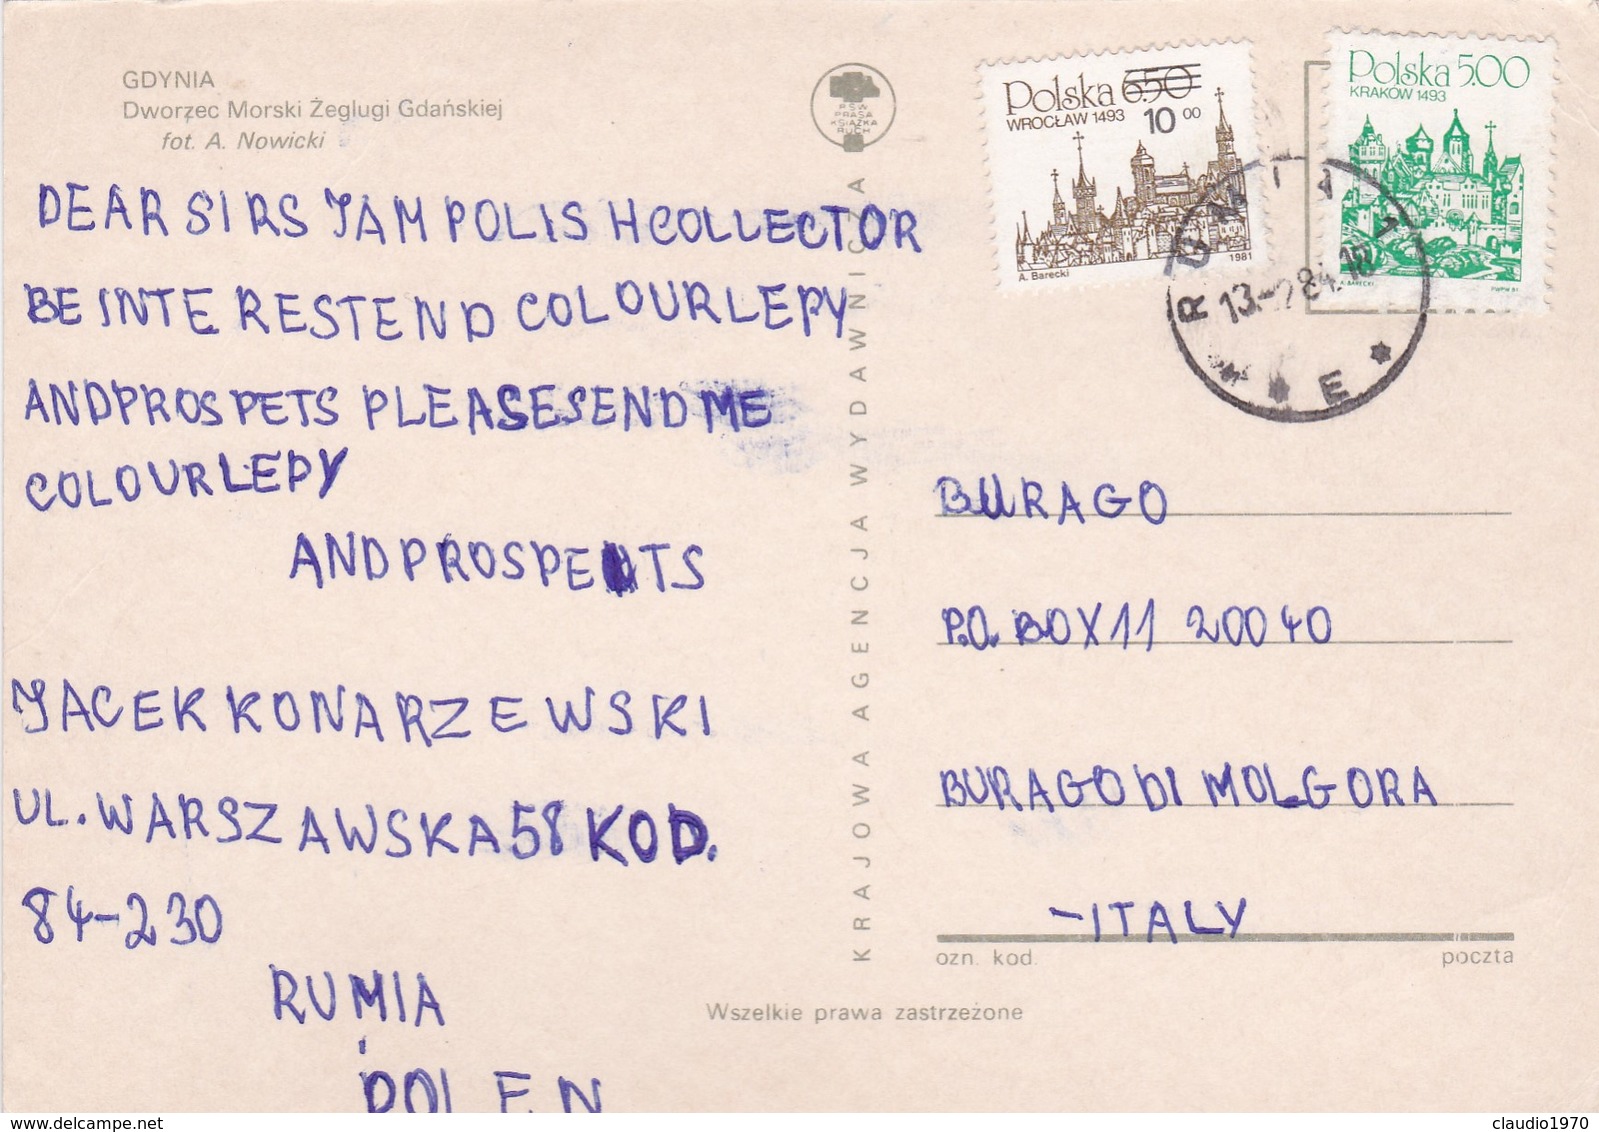 GDYNIA
Dworzec Morski Żeglugi Gdańskiej
fot. A. Nowicki
PSW
PRASA
KSIĄŻKA
RUCH
Polska 6.50
WROCŁAW 1493 10 00
A. Barecki 1981
Polska 5.00
KRAKÓW 1493
A. BARECKI
RUMIA 1
13.-284.18
E
DEAR SIRS JAM POLIS HCOLLECTOR
BE INTE RESTEND COLOURLEPY
ANDPROSPETS PLEASESEND ME
COLOURLEPY
ANDPROSPETS
JACEK KONARZEWSKI
UL. WARSZAWSKA 58 KOD.
84-230
RUMIA
POLEN
KRAJOWA AGENCJA WYDAWNICZA
BURAGO
P.O. BOX 11 20040
BURAGO DI MOLGORA
-ITALY
ozn. kod. poczta
Wszelkie prawa zastrzeżone
claudio1970